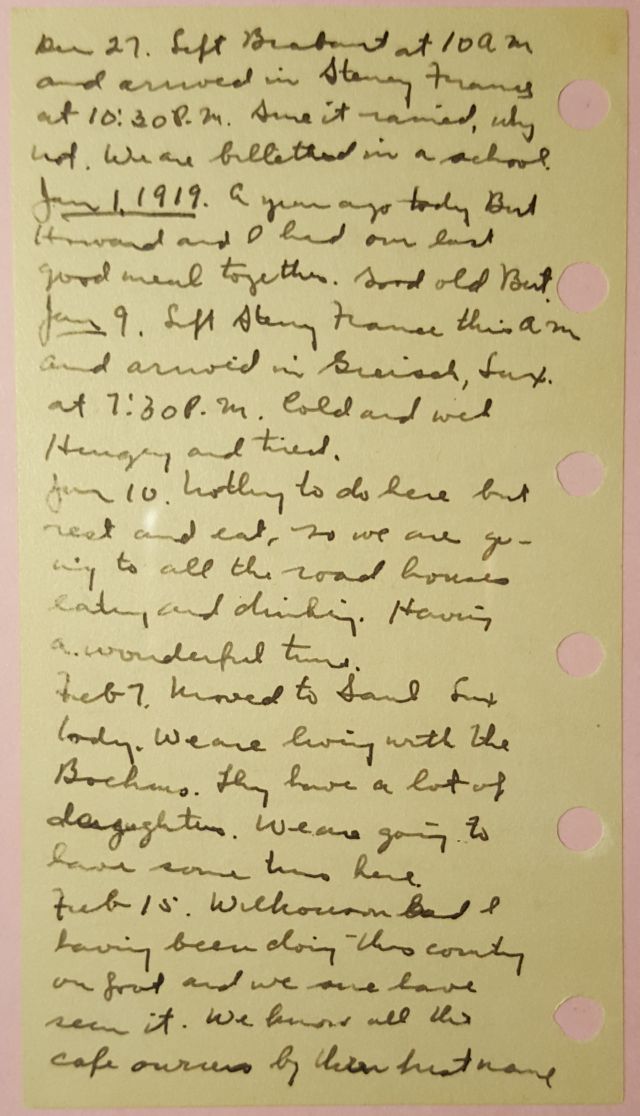 Dec 27. Left Brabant at 10 A M
and arrived in Stenay France
at 10:30 P.M. Sure it rained, why
not. We are billetted in a school.
Jan 1, 1919. A year ago today Bert
Howard and I had our last
good meal together. Good old Bert.
Jan 9. Left Stenay France this A M
and arrived in Greisch, Lux.
at 7:30 P.M. Cold and wet
Hungry and tired.
Jan 10. Nothing to do here but
rest and eat, so we are go-
ing to all the road houses
eating and drinking. Having
a wonderful time.
Feb 7. Moved to Saeul Lux
today. We are living with the
They have a lot of
daughters. We are going to
have some time here.
Feb 15. and I
having been doing this country
on foot and we sure have
seen it. We know all the
cafe owners by their first name